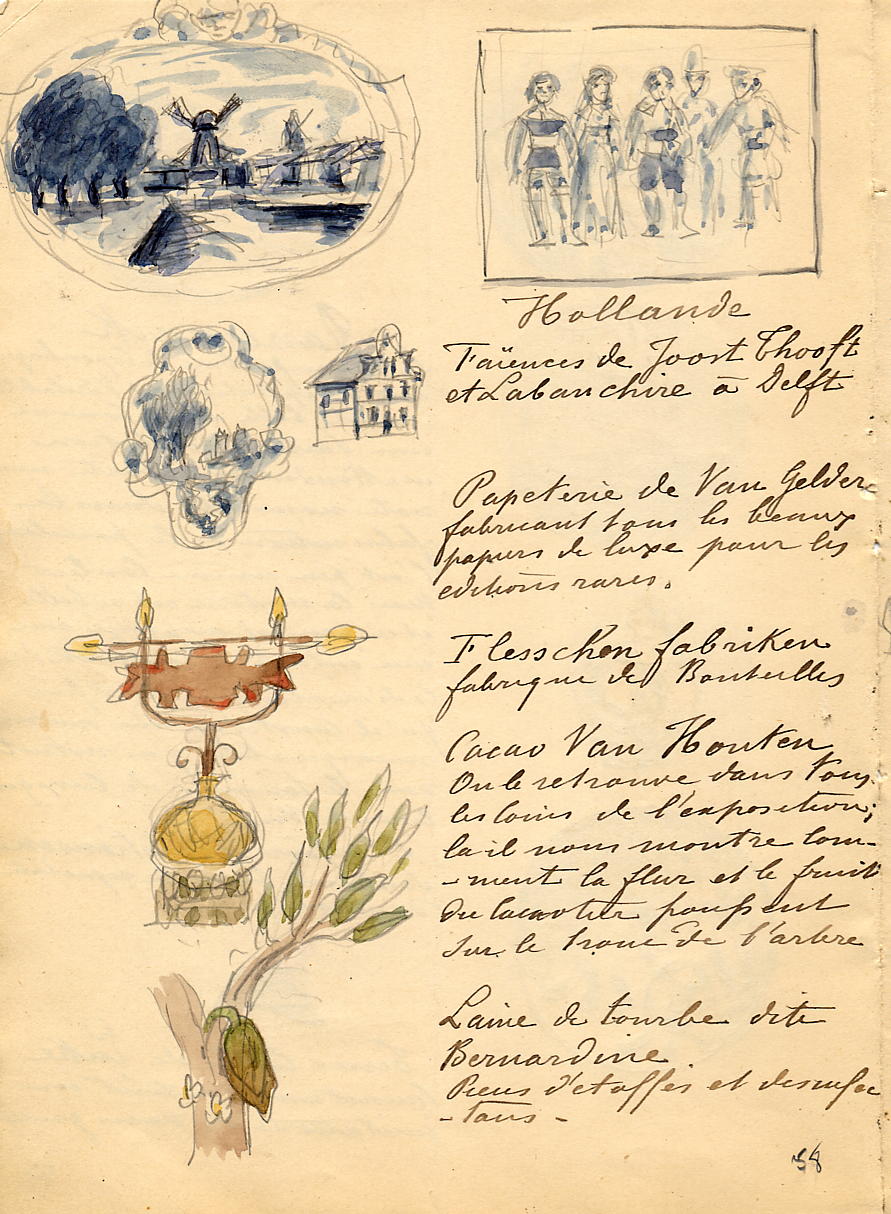 Hollande
Faïences de Joost Thooft
et Labouchire à Delft
Papeterie de Van Gelder
fabricant tous les beaux
papiers de luxe pour les
editions rares.
Flesschen fabriken
fabrique de Bouteilles
Cacao Van Houten
On le retrouve dans tous
les coins de l'exposition;
la il nous montre com-
-ment la fleur et le fruit
du cacaotier poussent
sur le tronc de l'arbre
Laine de tourbe dite
Bernardine
d'etoffes et desinfec
-tans -
58